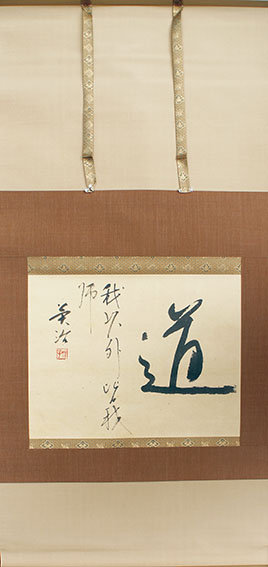 道
我以外皆我
師
英治